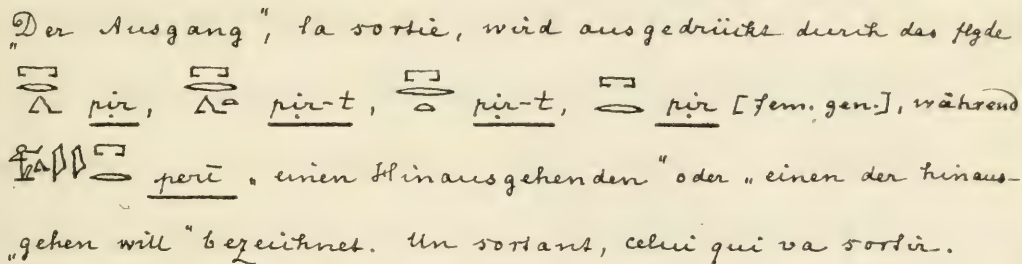 „Der Ausgang", la sortie, wird ausgedrückt durch das flgde
𓉐𓂋𓂻 pir, 𓉐𓂋𓂻𓏏 pir-t, 𓉐𓂋𓏏 pir-t, 𓉐𓂋 pir [fem. gen.], während
𓂻𓇋𓇋𓉐𓂋 perī „einen Hinausgehenden" oder „einen der hinaus-
„gehen will" bezeichnet. Un sortant, celui qui va sortir.